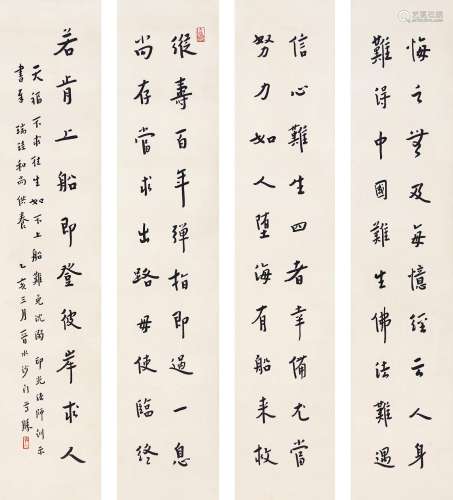 悔之無及每憶經云人身
難得中國難生佛法難遇
信心難生四者幸備尤當
努力如人墮海有船来救
縱壽百年彈指即過一息
尚存當求出路毋使臨終
若肯上船即登彼岸求人
天福不求往生如不上船難免沉溺 印光法師訓示
書奉 瑞 和尚供養 乙亥三月晉水沙門 勝